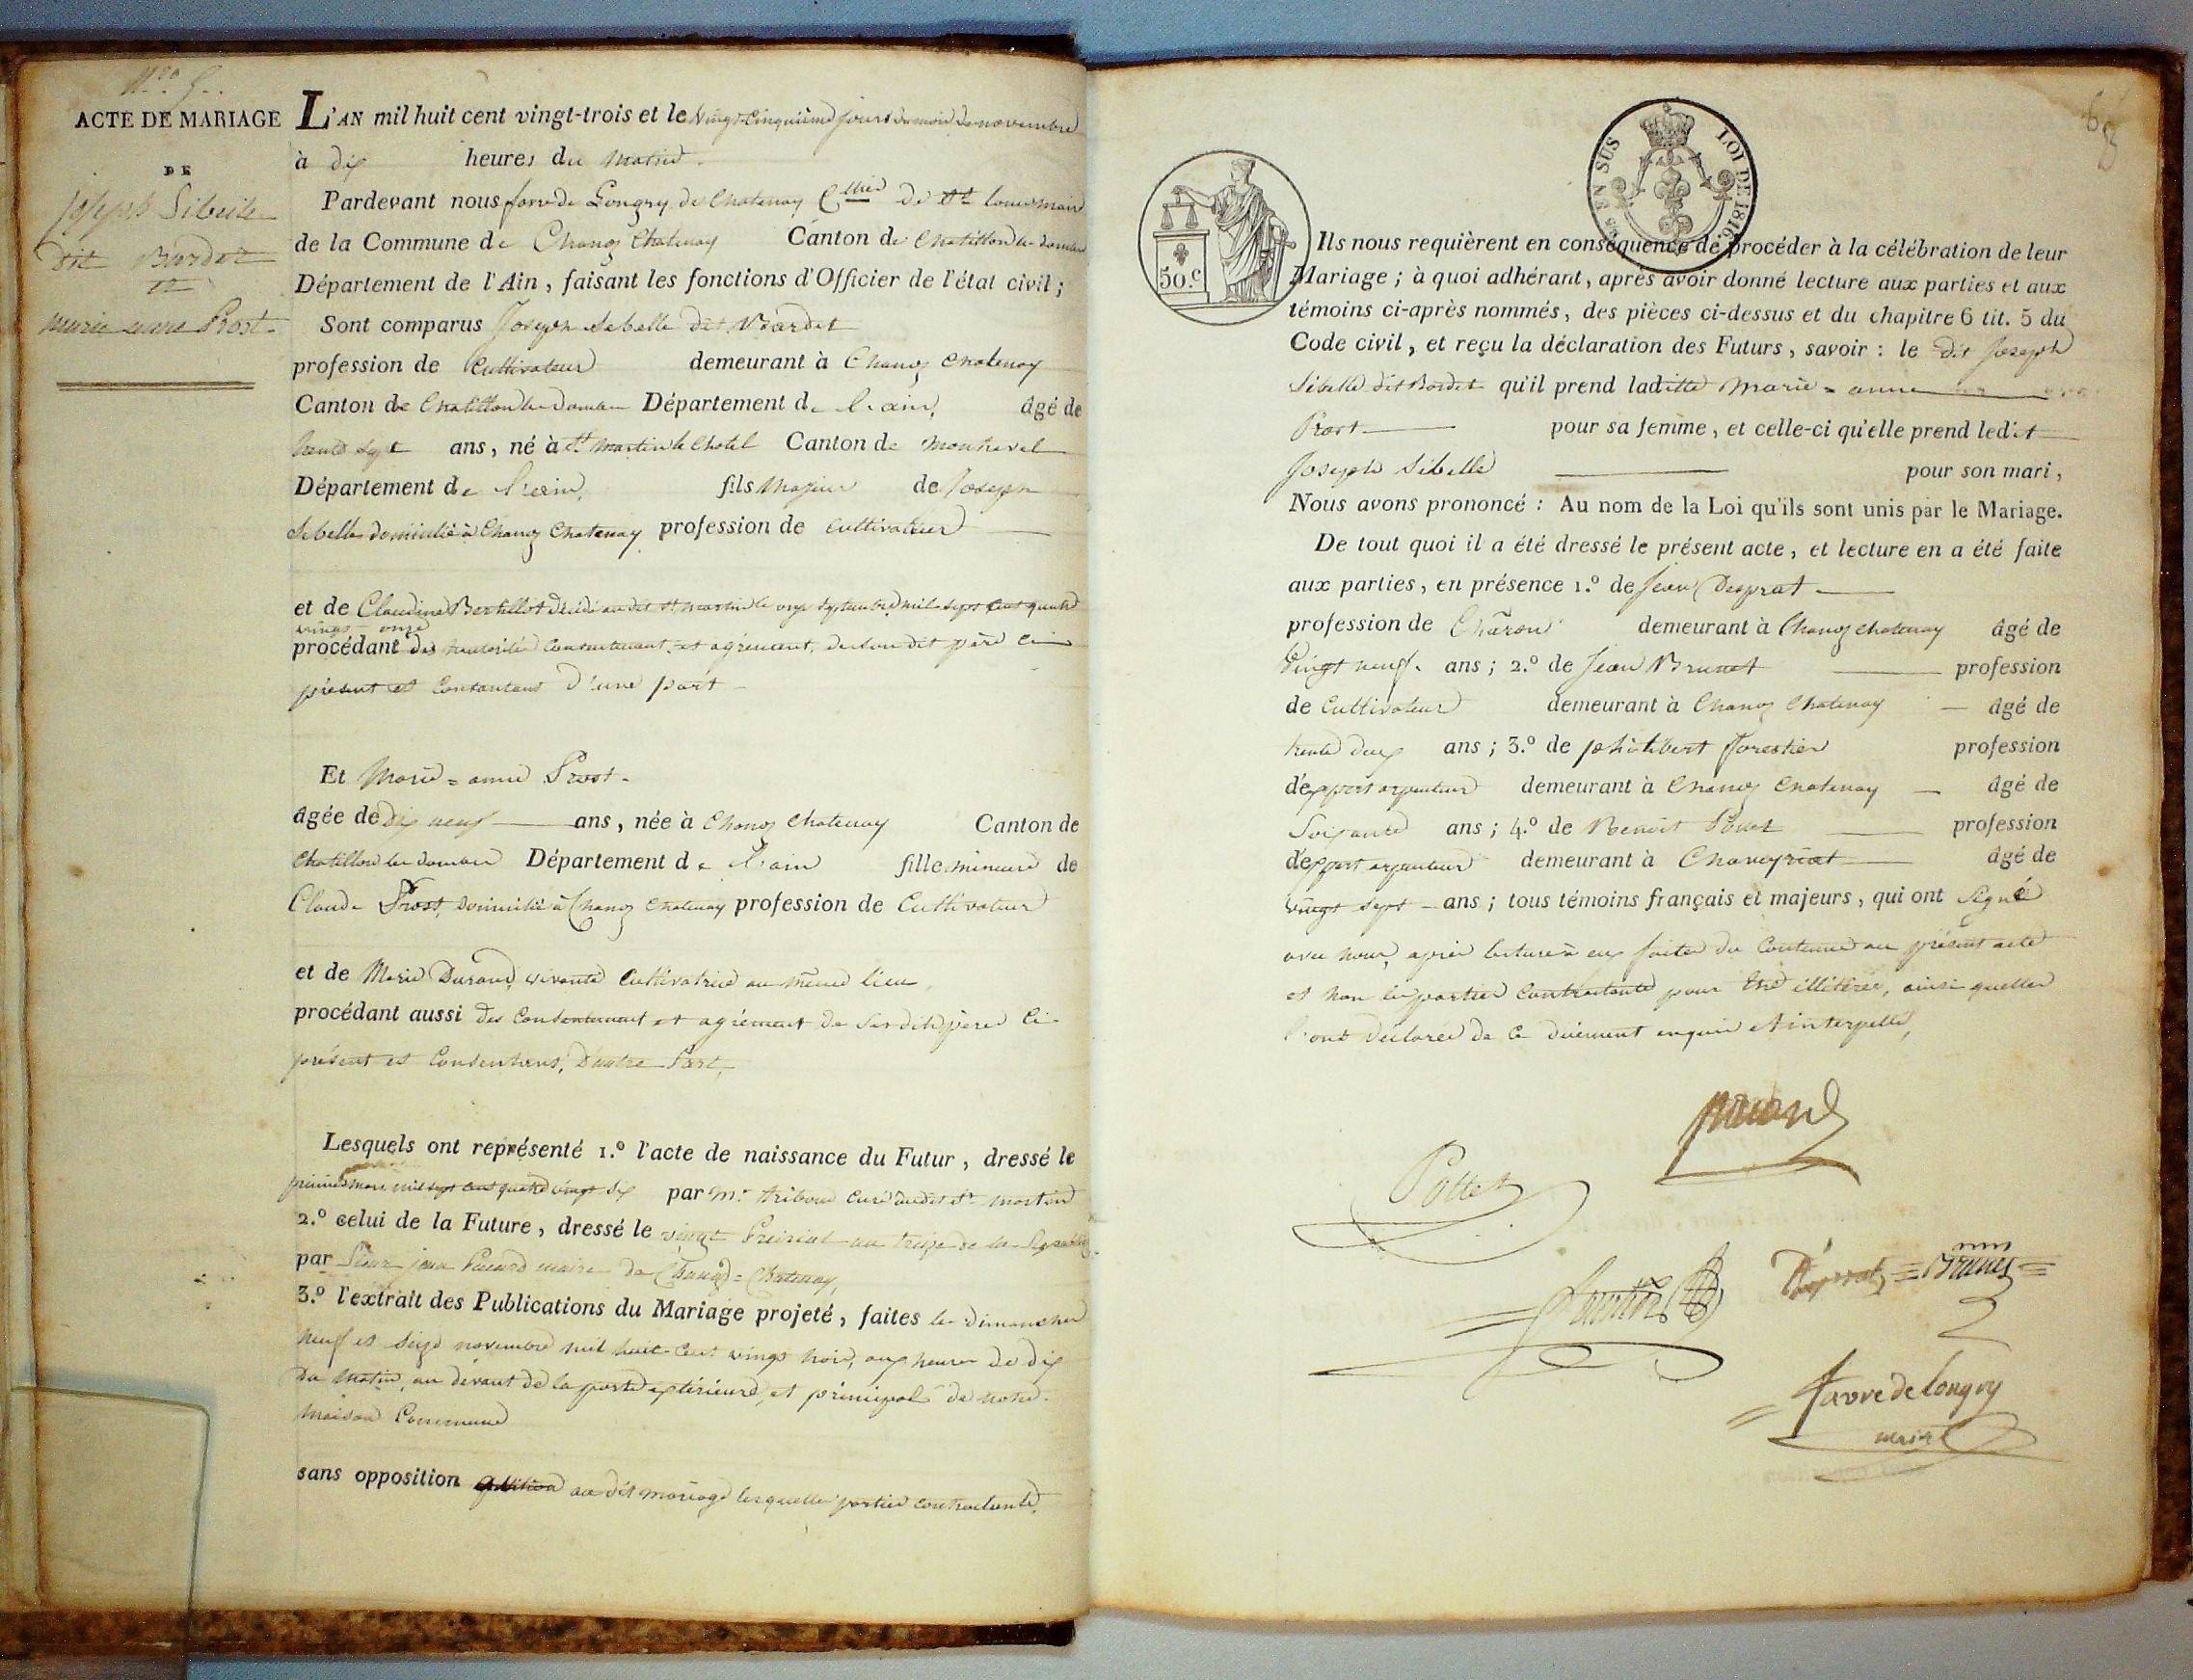 ACTE DE MARIAGE
DE
Joseph Sibelle
dit Bordet
et
marie anne Prost
L'AN mil huit cent vingt-trois et le vingt-cinquième jour du mois de novembre
à dix heures du matin
Pardevant nous favre de Longry de Chatenay de St Louis maire
de la Commune de Chanoz Chatenay Canton de Chatillon les dombes
Département de l'Ain, faisant les fonctions d'Officier de l'état civil;
Sont comparus Joseph Sebelle dit Bordet
profession de Cultivateur demeurant à Chanoz Chatenay
Canton de Chatillon les dombes Département de l'ain, âgé de
trente sept ans, né à St Martin le Chatel Canton de Montrevel
Département de l'ain, fils Majeur de Joseph
Sebelle domicilié à Chanoz Chatenay profession de cultivateur
et de Claudine Berthillot décédée audit St martin le onze septembre mil sept cent quatre
vingt onze
procédant des consentement et agrément de son dit père ci
présent et Consentant d'une part
Et Marie = anne Prost
âgée de dix neuf ans, née à Chanoz Chatenay Canton de
Chatillon les dombes Département de l'ain fille mineure de
Claude Prost, domicilié à Chanoz Chatenay profession de Cultivateur
et de Marie Durand, vivante Cultivatrice au même lieu
procédant aussi des Consentement et agrément de ses dits père ci
présent et Consentans, d'autre Part,
Lesquels ont représenté 1.º l'acte de naissance du Futur, dressé le
premier mars mil sept cent quatre vingt six par Mr. curé dudit St. martin
2.º celui de la Future, dressé le vingt Prairial an treize de la
par Sieur maire de Chanoz = Chatenay,
3.º l'extrait des Publications du Mariage projeté, faites les dimanches
neuf et seize novembre mil huit cent vingt trois, aux heures de dix
du matin, au devant de la porte extérieure, et principale de notre
maison Commune
sans opposition au dit mariage lesquelles parties contractante,
5 EN SUS
LOI DE 1816.
50.c
Ils nous requièrent en conséquence de procéder à la célébration de leur
Mariage; à quoi adhérant, après avoir donné lecture aux parties et aux
témoins ci-après nommés, des pièces ci-dessus et du chapitre 6 tit. 5 du
Code civil, et reçu la déclaration des Futurs, savoir: le dit Joseph
Sibelle dit Bordet qu'il prend laditte Marie = anne
Prost pour sa femme, et celle-ci qu'elle prend ledit
Joseph Sibelle pour son mari,
Nous avons prononcé: Au nom de la Loi qu'ils sont unis par le Mariage.
De tout quoi il a été dressé le présent acte, et lecture en a été faite
aux parties, en présence 1.º de Jean Desprat
profession de Charon demeurant à Chanoz chatenay âgé de
vingt neuf ans; 2.º de Jean Brunet profession
de Cultivateur demeurant à Chanoz Chatenay âgé de
trente deux ans; 3.º de philibert forestier profession
d'expert arpenteur demeurant à Chanoz Chatenay âgé de
Soixante ans; 4.º de Benoit Pottet profession
d'expert arpenteur demeurant à Chaveyriat âgé de
vingt sept ans; tous témoins français et majeurs, qui ont signé
avec nous, après lecture à eux faite du Contenu au présent acte
et non les parties Contractante pour être illitérée, ainsi quelles
l'ont déclarée de ce duement enquis et interpellé,
Pottet
Desprat
Brunet
favre de longry
maire